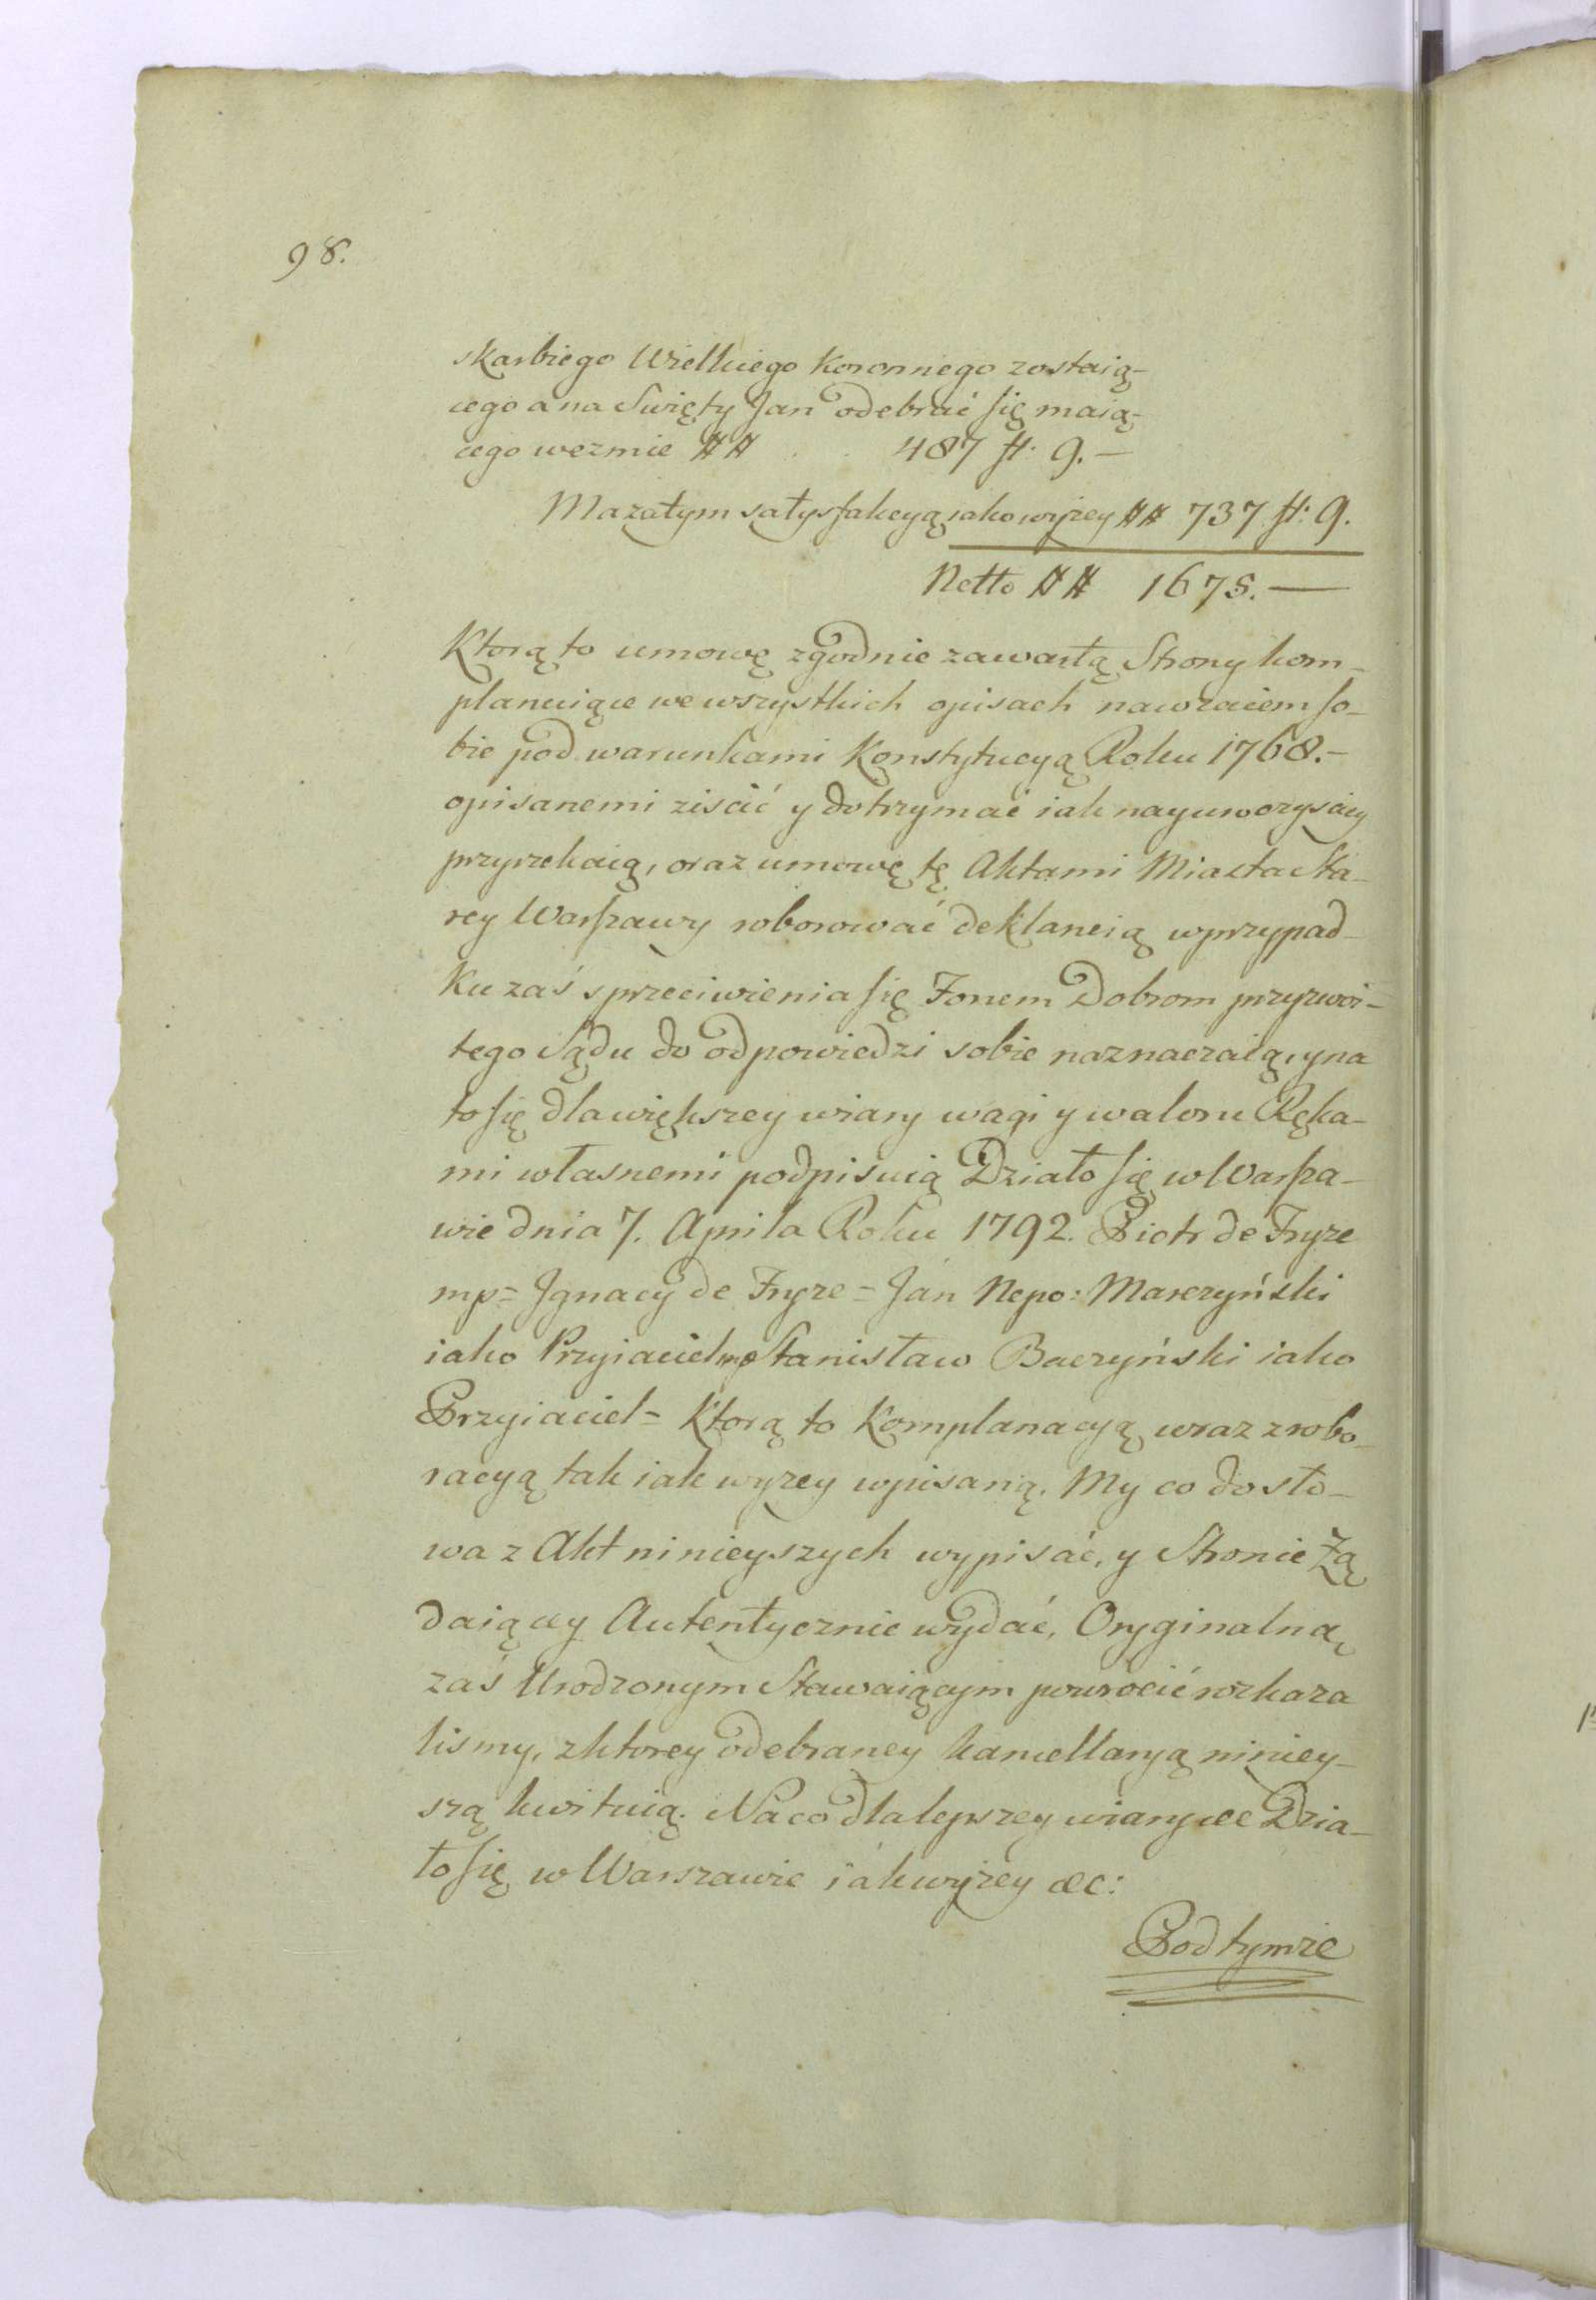 98.
skarbiego Wielkiego Koronnego zostaią-
cego a na Swięty Jan odebrać się maią-
cego wezmie ## . . 487 fł: 9.—
Ma zatym satysfakcyą iako wyżey ## 737 fł: 9.
Netto ## 1675.—
Ktorą to umowę zgodnie zawartą Strony kom-
planuiące we wszystkich opisach nawzaiem so-
bie pod warunkami Konstytucyą Roku 1768.-
opisanemi ziscić y dotrzymać iak nayuroczyscicy
przyrzekaią, oraz umowę tę Aktami Miasta Sta-
rey Warszawy roborować deklaruią w przypad-
ku zaś sprzeciwienia się Forum Dobrom przyzwoi-
tego Sądu do odpowiedzi sobie naznaczaią, y na
to się dla większey wiary wagi y waloru Ręka-
mi własnemi podpisuią Działo się w Warsza-
wie dnia 7. Aprila Roku 1792. Piotr de Fryze
mp= Jgnacy de Fryze = Jan Nepo: Marczyński
iako Przyiaciel mp Stanisław Baczyński iako
Przyiaciel = Ktorą to Komplanacyą wraz z robo-
racyą tak iak wyżey wpisaną. My co do sło-
wa z Akt ninieyszych wypisać, y Stronie Żą
daiącey Autentycznie wydać, Oryginalną
zaś Urodzonym Stawaiącym powrócić rozkaza
lismy, z ktorey odebraney kancellaryą niniey-
szą kwituią. Na co dla lepszey wiary &c Dzia-
ło się w Warszawie iak wyżey &c:
Pod tymże